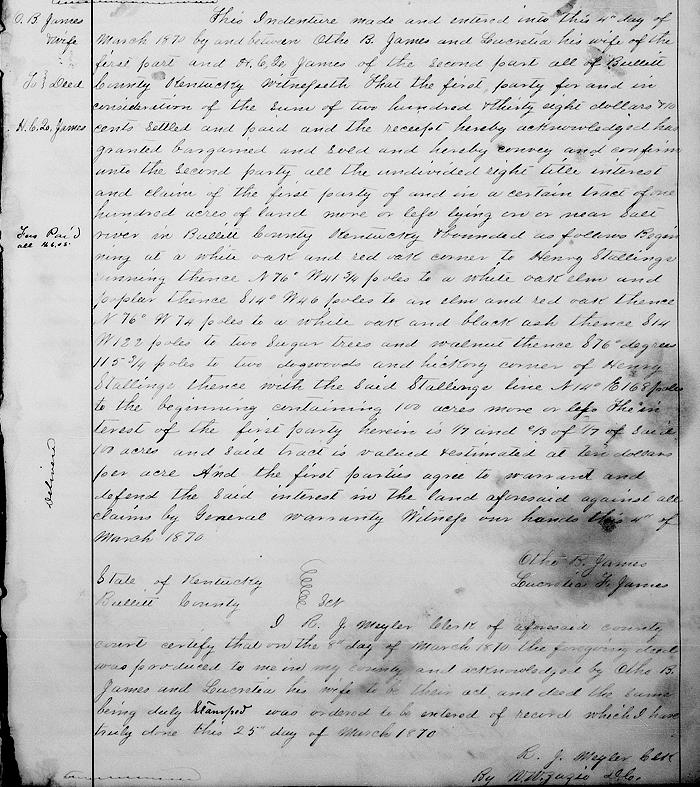 O. B. James
& Wife
To } Deed
H. C. L. James
Tax Pai'd
all
Delivered
This Indenture made and entered into this 4" day of
March 1870 by and between Otho B. James and Lucretia his wife of the
first part and H. C. L. James of the second part all of Bullitt
County Kentucky Witnesseth That the first party for and in
consideration of the sum of two hundred & thirty eight dollars & 10
cents settled and paid and the receipt hereby acknowledged has
granted bargained and sold and hereby convey and confirm
unto the second party all the undivided right title interest
and claim of the first party of and in a certain tract of one
hundred acres of land more or less lying on or near Salt
river in Bullitt County Kentucky & bounded as follows Begin
ning at a white oak and red oak corner to Henry Stallings
running thence N 76° W 41 3/4 poles to a white oak elm and
poplar thence S 14° W 46 poles to an elm and red oak thence
N 76° W 74 poles to a white oak and black ash thence S 14
W 122 poles to two sugar trees and walnut thence S 76° degrees
115 3/4 poles to two dogwoods and hickory corner of Henry
Stallings thence with the said Stallings line N 14° E 168 poles
to the beginning containing 100 acres more or less The in
terest of the first party herein is 1/7 and 2/3 of 1/7 of said
100 acres and said tract is valued & estimated at ten dollars
per acre And the first parties agree to warrant and
defend the said interest in the land aforesaid against all
claims by General warranty Witness our hands this 4" of
March 1870
Otho B. James
Lucretia F. James
State of Kentucky
Bullitt County Sct
I R. J. Meyler Clerk of aforesaid county
court certify that on the 8" day of March 1870 the foregoing deed
was produced to me in my county and acknowledged by Otho B.
James and Loucretia his wife to be their act and deed the same
being duly Stamped was ordered to be entered of record which I have
truly done this 25" day of March 1870
R. J. Meyler Clk
By D.C.